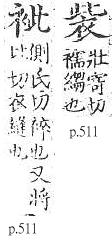 壯寄切
襦縐也
p.511
側氏切也又將
此切衣縫也
p.511